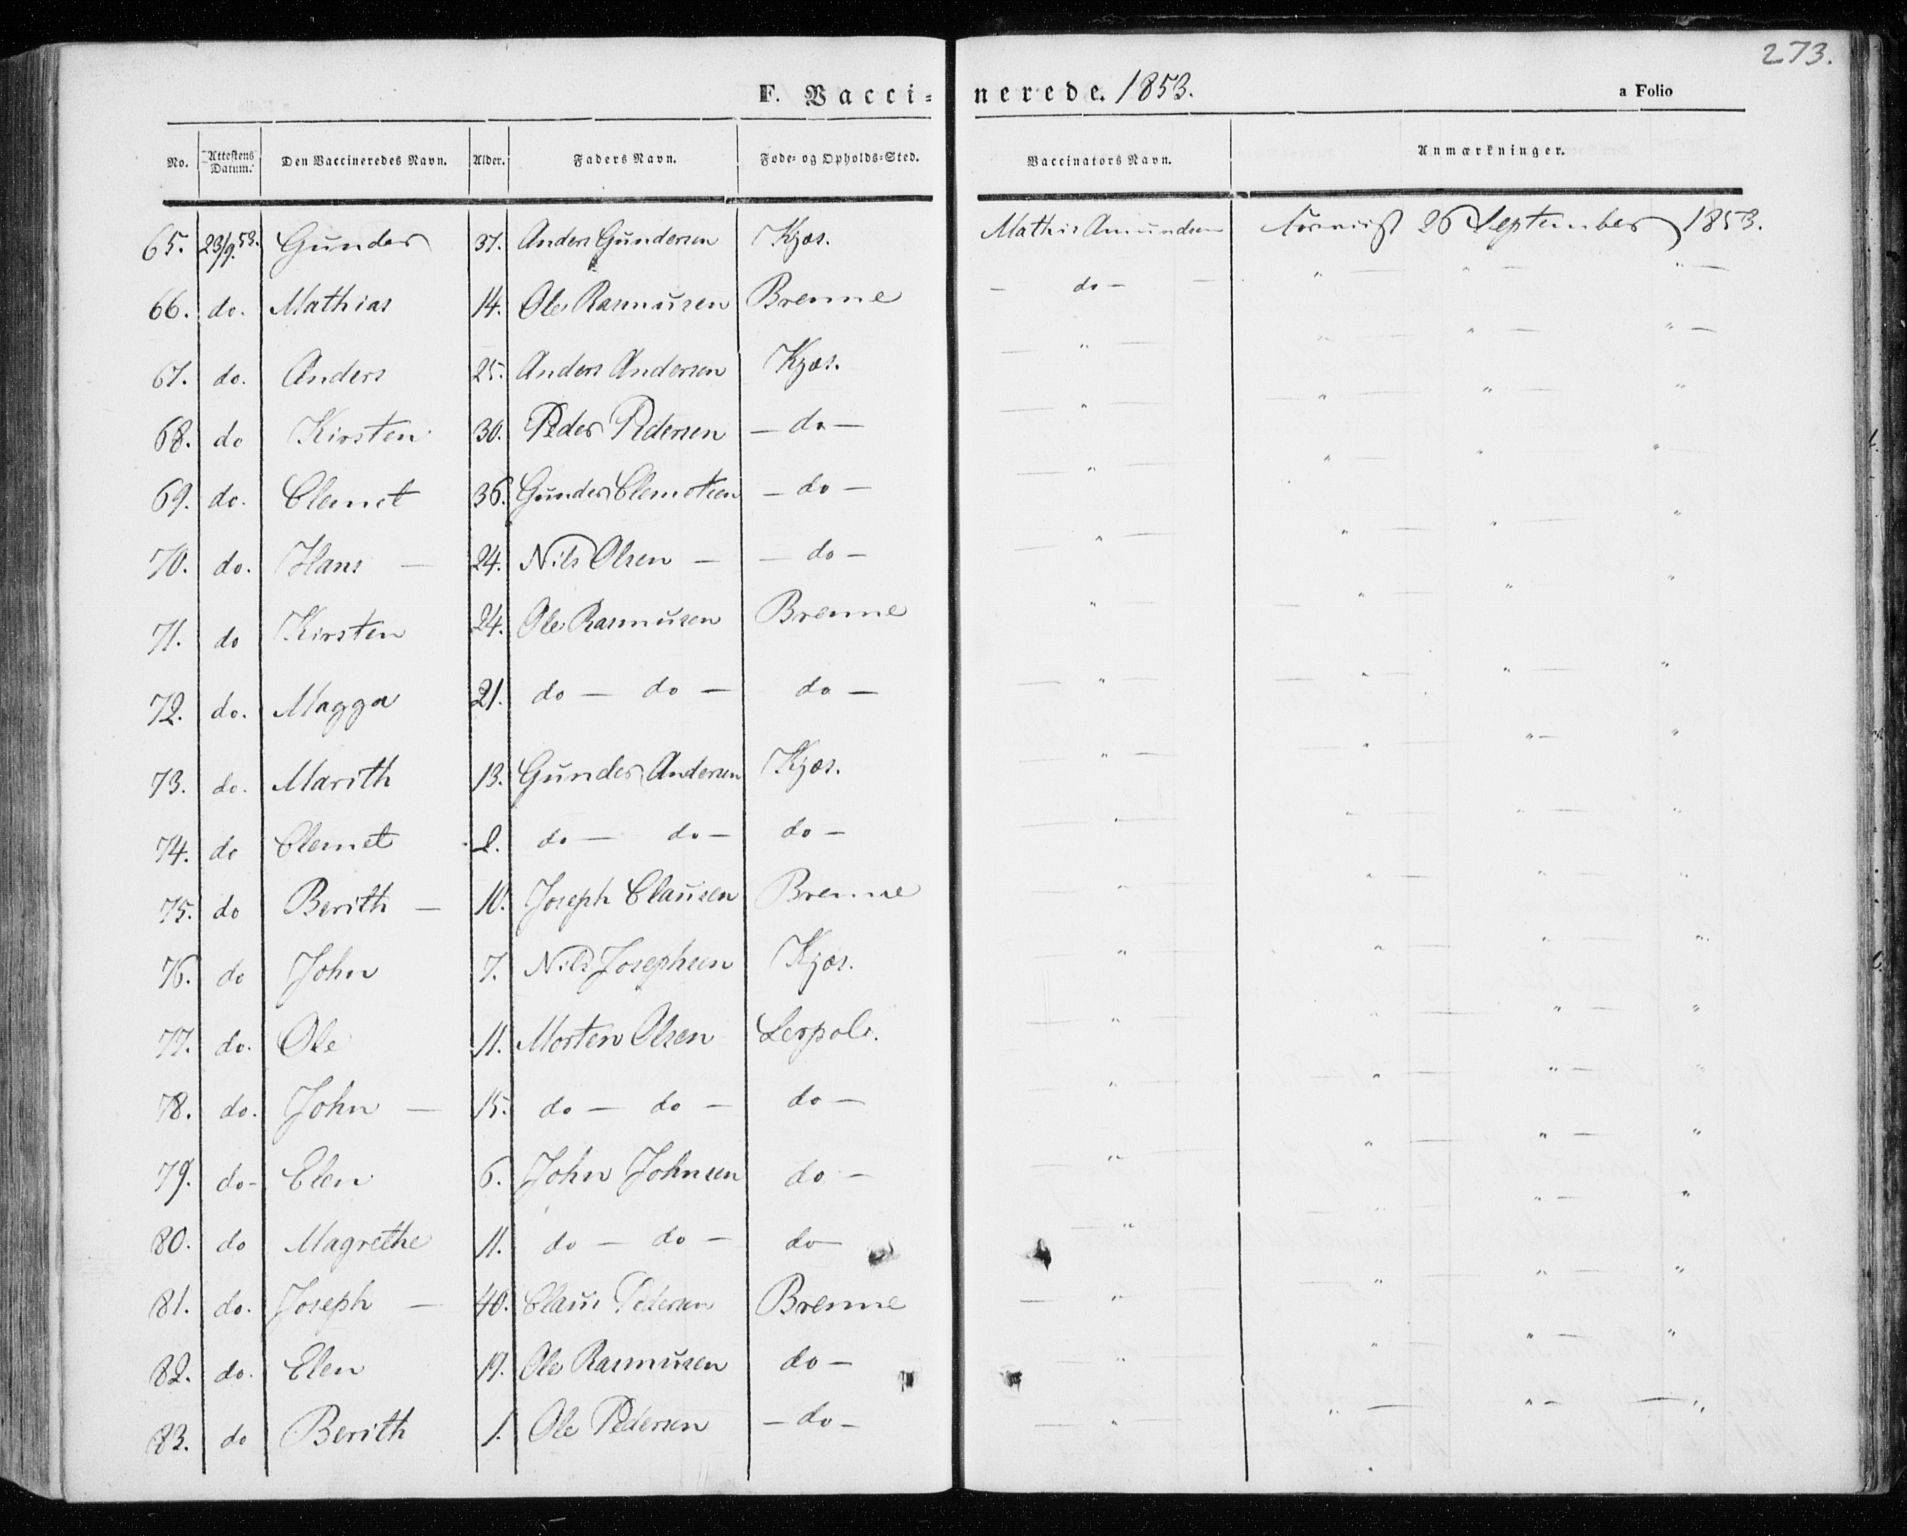 273.
F. Vacci-nerede. 1853.
a Folio
No. Attestens Datum. Den Vaccineredes Navn. Alder. Faders Navn. Føde- og Opholds-Sted. Vaccinators Navn. Anmærkninger.
65. 23/9.53. Gunder 37. Anders Gundersen Kjæs. Mathis Amundsen 26 September 1853.
66. do. Mathias 14. Ole Rasmusen Brenne - do - " - " - " -
67. do. Anders 25. Anders Andersen Kjæs. - " - " - " - " -
68. do Kirsten 30. Peder Pedersen - do - - " - " - " - "
69. do. Clemet 36. Gunder Clemetsen - do - - " - " - " - "
70. do. Hans - 24. Nils Olsen - - do - - " - " - " - "
71. do Kirsten 24. Ole Rasmusen Brenne " - " - " - "
72. do. Magga 21. do - do - do - - " - " - " - "
73. do. Marith 13. Gunder Andersen Kjæs. - " - " - " - "
74. do Clemet 2. do - do - do - - " - " - " - "
75. do Berith - 10. Joseph Clausen Brenne - " - " - " - "
76. do John 7. Nils Josephsen Kjæs. " - " - " - "
77. do. Ole 11. Morten Olsen Lerpol. - " - " - " - "
78. do. John - 15. do - do - do - " - " - " - "
79. do - Elen 6. John Johnsen do - - " - " - " - "
80. do Magrethe 11. do - do - do - - " - " - " - "
81. do. Joseph - 40. Claus Pedersen Brenne - " - " - " - "
82. do. Elen 19. Ole Rasmusen do - " " " - "
83. do Berith 1. Ole Pedersen - do - - " - " - " - "